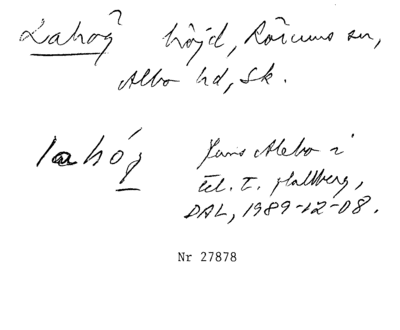 Lahög höjd, Rörums sn,
Albo hd, Sk.
lahög Jens Alebo i
tel. t. Hallberg,
DAL, 1989-12-08.
Nr 27878